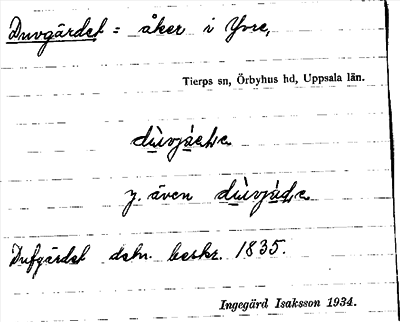 Duvgärdet = åker i Yvre,
Tierps sn, Örbyhus hd, Uppsala län.
y. även
Dufgärdet dsbr. beskr. 1835.
Ingegärd Isaksson 1934.